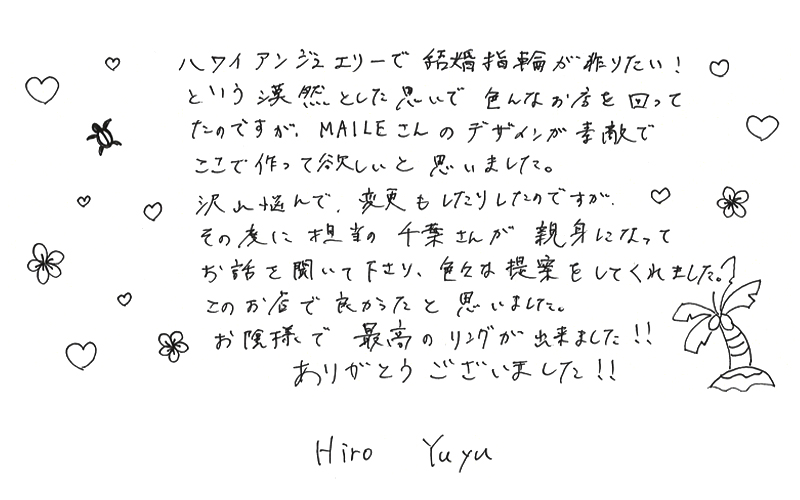 ハワイアンジュエリーで 結婚指輪が作りたい！
という漠然とした思いで 色んなお店を回って
たのですが、MAILEさんのデザインが素敵で
ここで作って欲しいと思いました。
沢山悩んで、変更もしたりしたのですが、
その度に担当の千葉さんが 親身になって
お話を聞いて下さり、色々な提案をしてくれました。
このお店で良かったと思いました。
お陰様で 最高のリングが出来ました!!
ありがとうございました!!
Hiro Yuyu